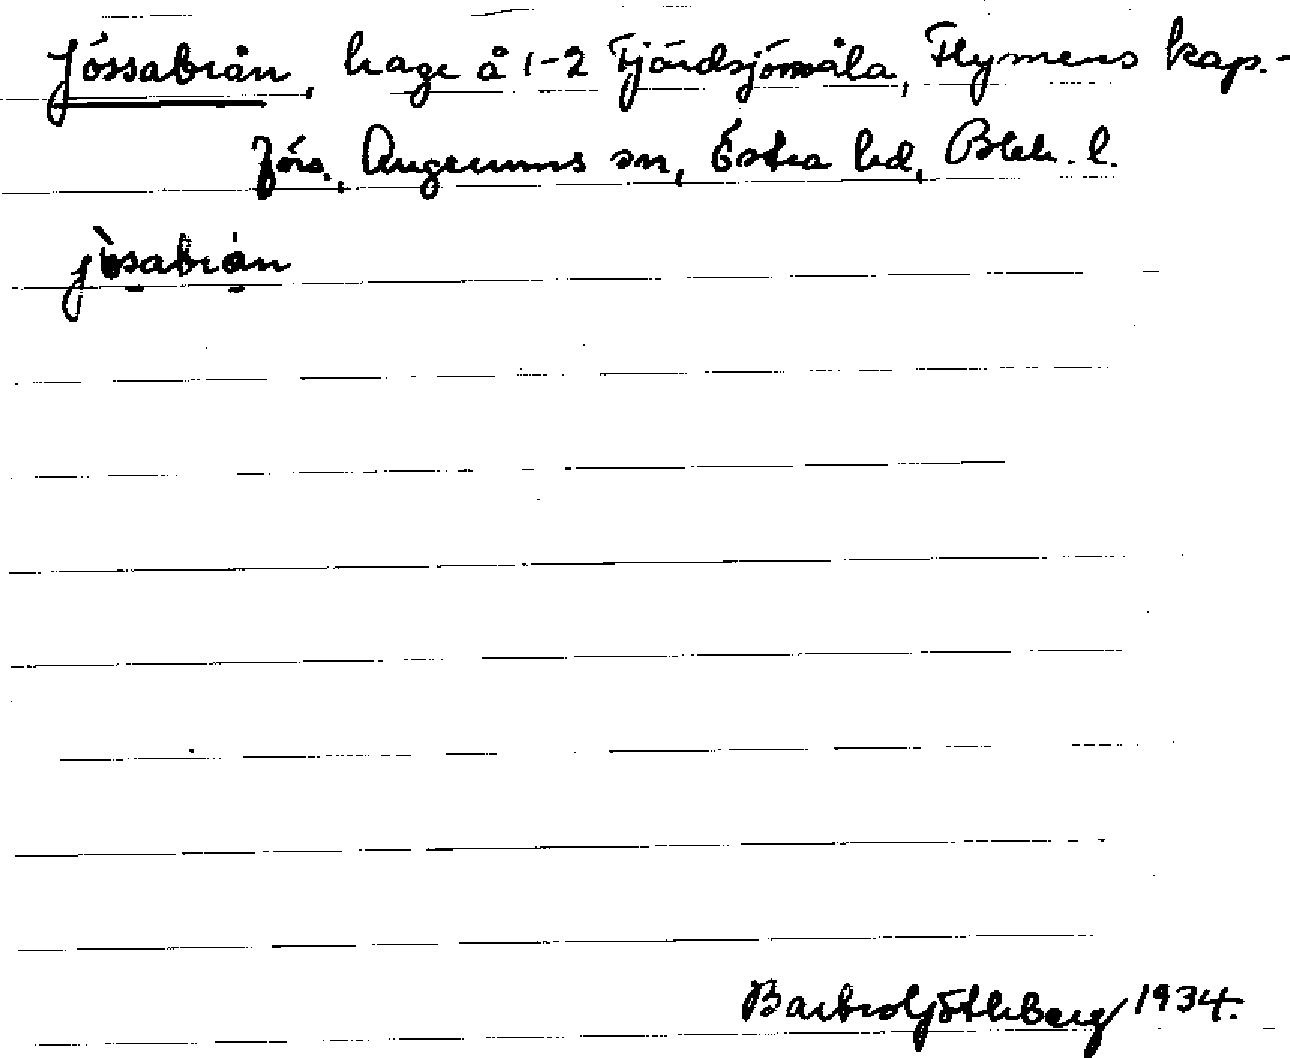 Jössabrån, hage å 1-2 Fjärdsjömåla, Flymens kap.-
förs., Augerums sn, Östra hd, Blek. l.
jösabrån
Barbro Götlberg 1934.